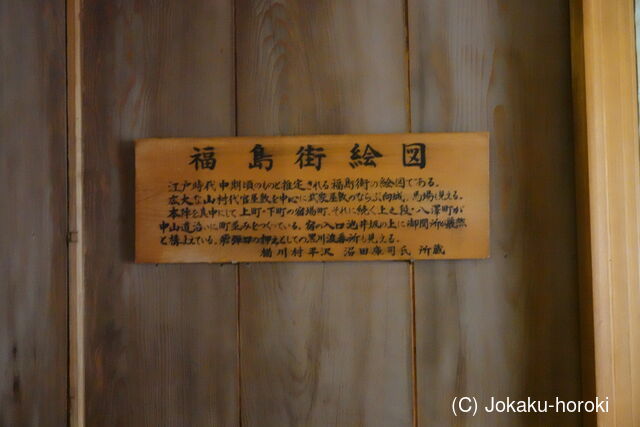 福島街絵図
江戸時代中期頃のものと推定される福島街の絵図である。
広大な山村代官屋敷を中心に武家屋敷のならぶ向城、馬場も見える。
本陣を真中にして上町・下町の宿場町、それに続く上之段・八澤町が
中山道沿いに町並みをつくっている。宿の入口池井坂の上に御関所が厳然
と構えている。岩郷口の押えとしての黒川渡番所も見える。
楢川村平沢 沼田 司氏 所蔵
(C) Jokaku-horoki